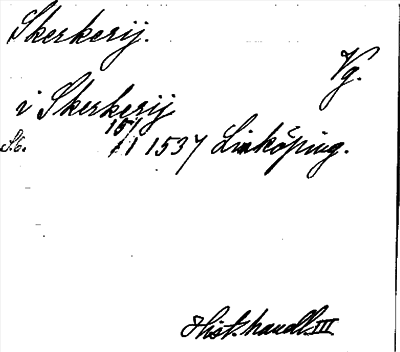 Skerkerij.
Vg.
i Skerkerij
S. 6. 15/1 1537 Linköping.
Hist. handl. III